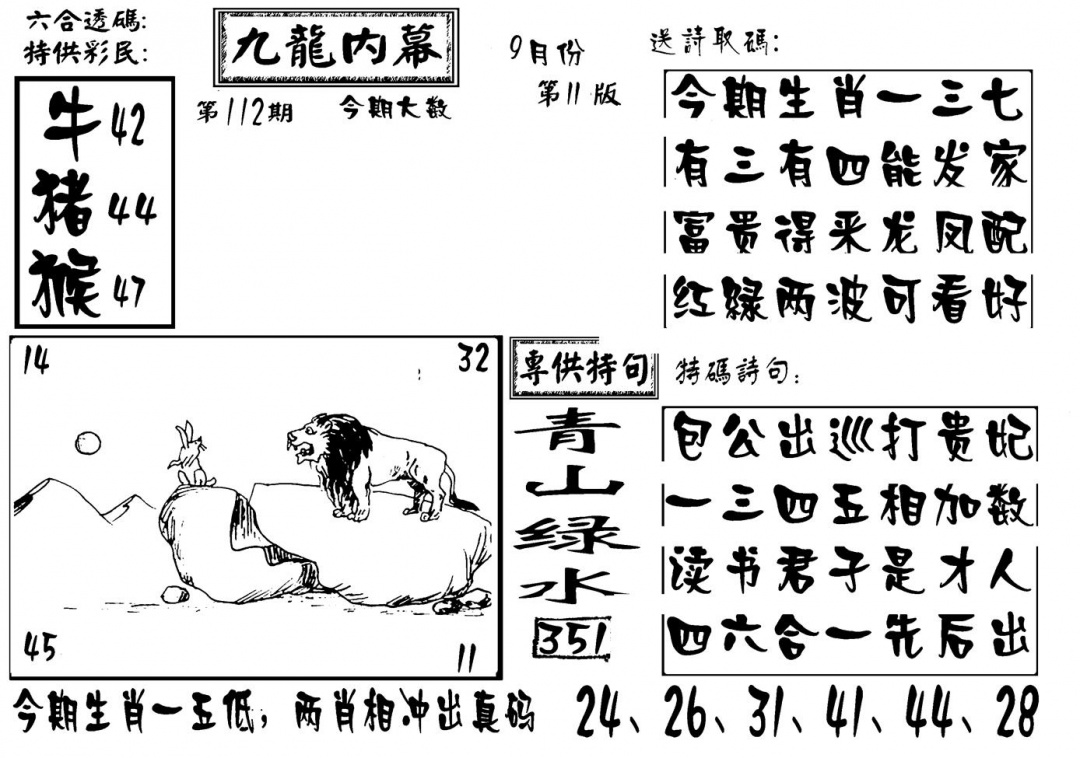 六合透碼:
特供彩民:
九龍内幕
9月份
第11版
第112期
今期大数
牛42
猪44
猴47
送詩取碼:
今期生肖一三七
有三有四能发家
富贵得来龙凤配
红绿两波可看好
14
32
45
11
專供特句
青山绿水
351
特碼詩句:
包公出巡打贵妃
一三四五相加数
读书君子是才人
四六合一先后出
今期生肖一五低,两肖相冲出真码
24、26、31、41、44、28